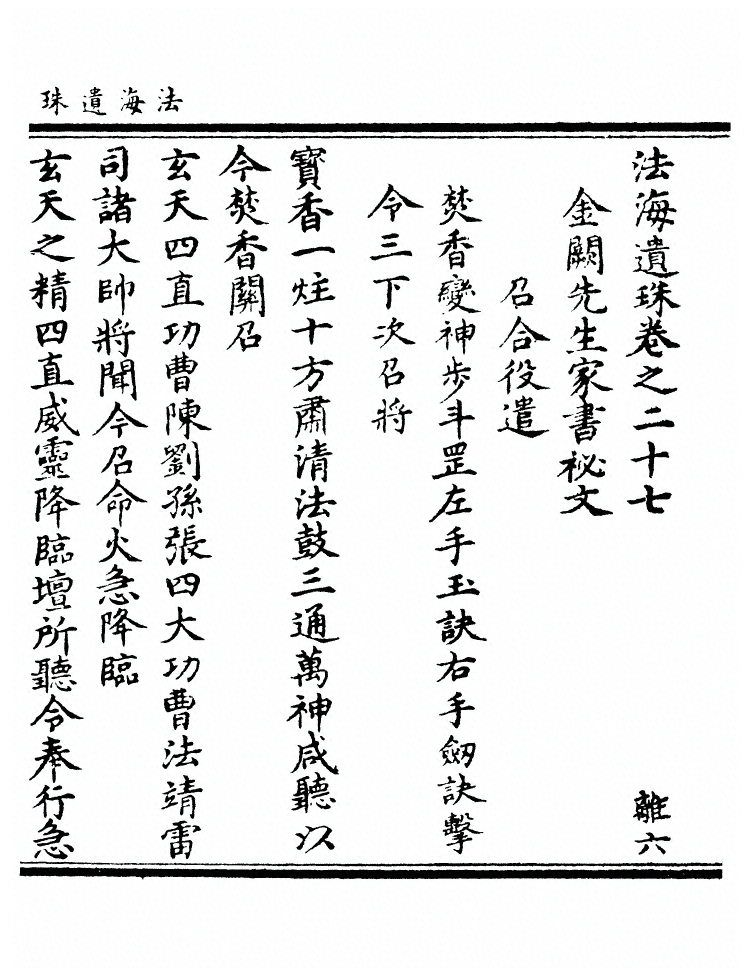 法海遺珠
法海遺珠卷之二十七 離六
金闕先生家書祕文
召合役遣
焚香變神步斗罡左手玉訣右手劒訣擊
令三下次召將
寶香一炷十方肅清法鼓三通萬神咸聽以
今焚香關召
玄天四直功曹陳劉孫張四大功曹法靖雷
司諸大帥將聞今召命火急降臨
玄天之精四直威靈降臨壇所聽令奉行急